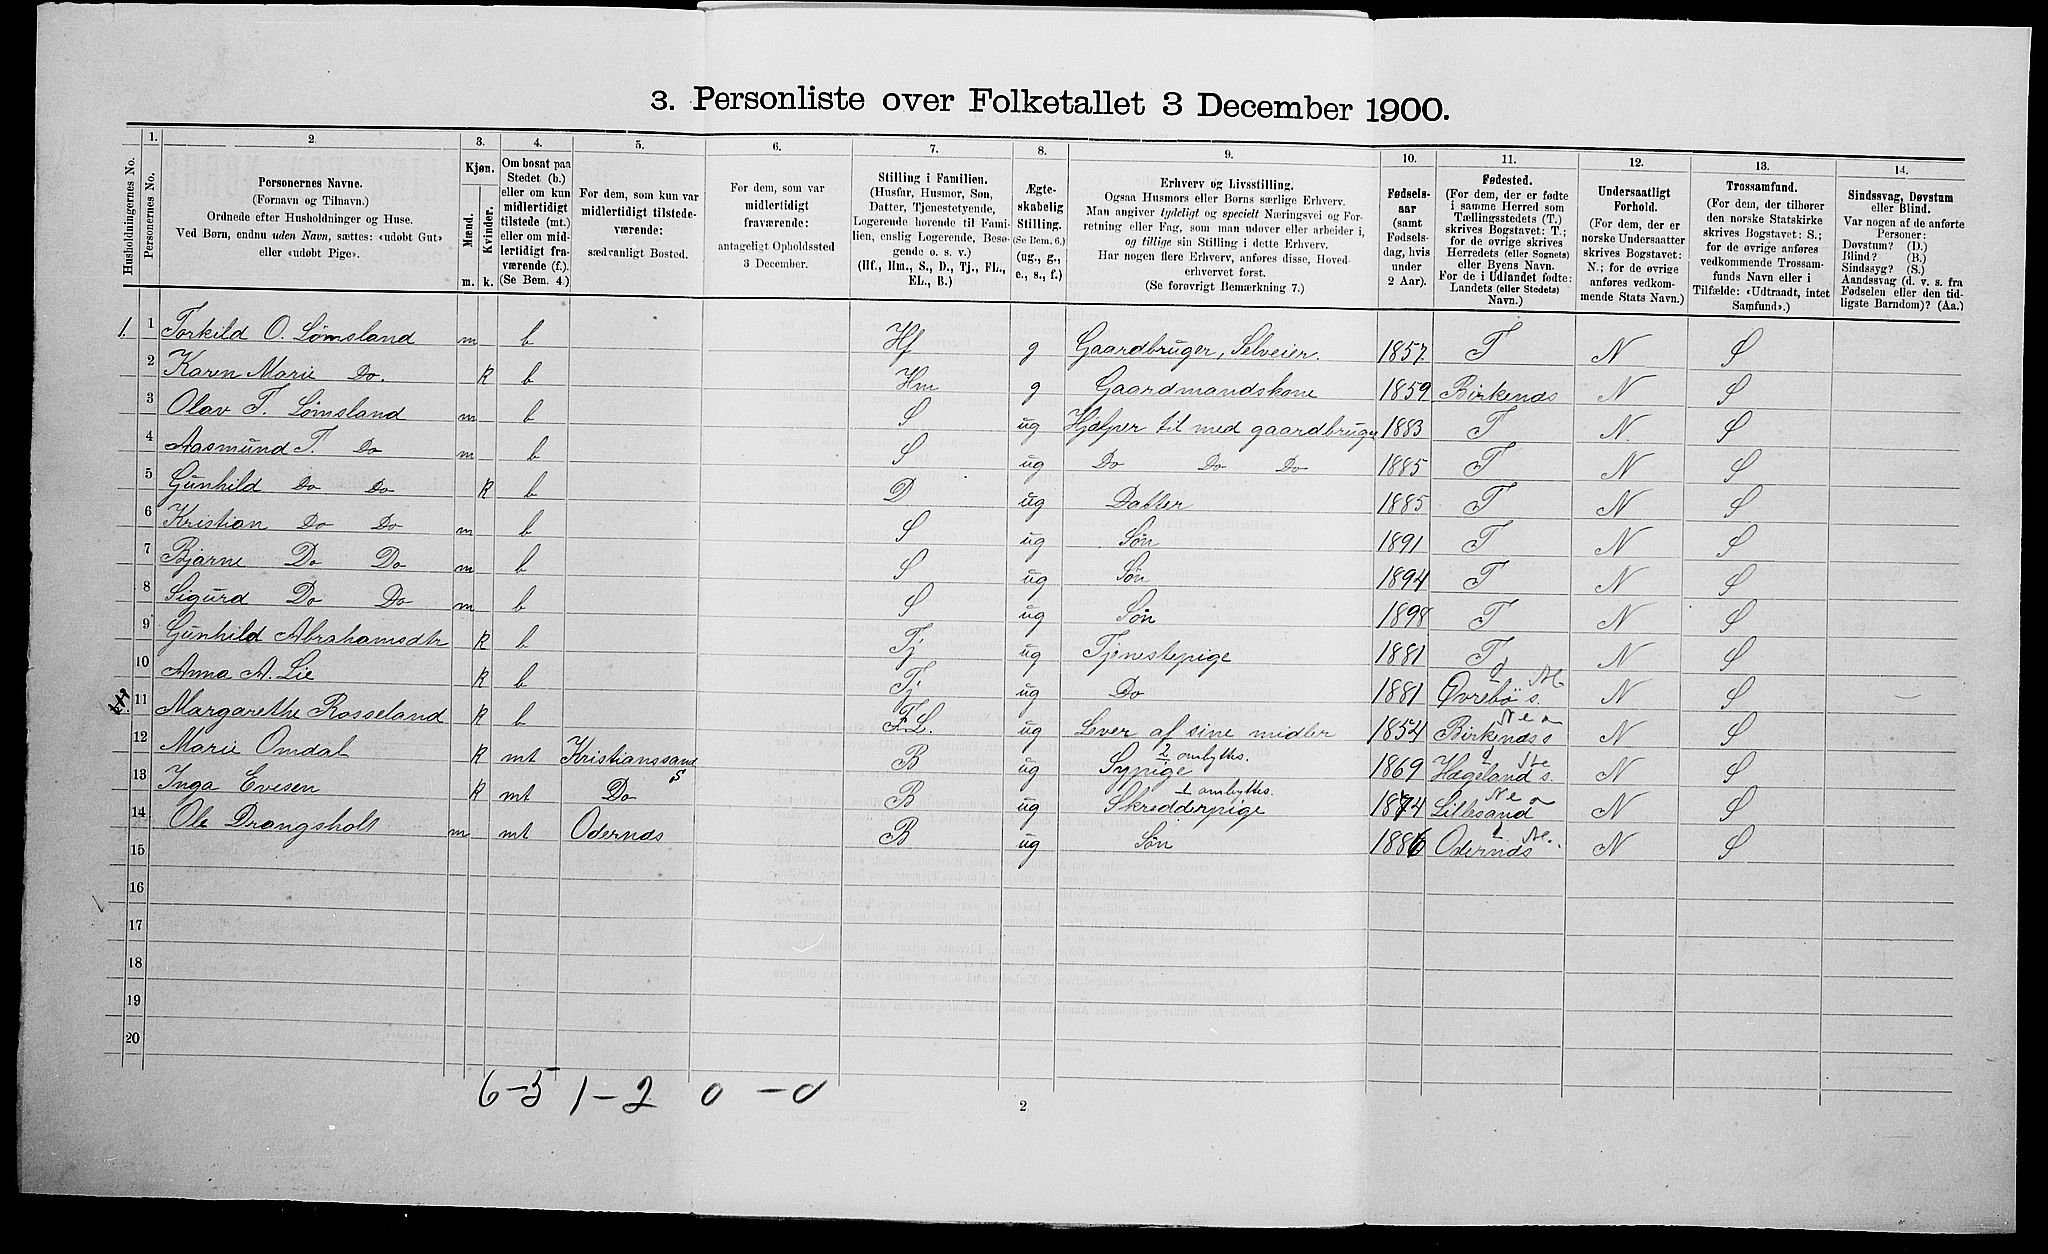 3. Personliste over Folketallet 3 December 1900.
Husholdningernes No.
1. Personernes No.
2. Personernes Navne.
(Fornavn og Tilnavn.)
Ordnede efter Husholdninger og Huse.
Ved Børn, endnu uden Navn, sættes: «udøbt Gut»
eller «udøbt Pige».
3. Kjøn.
Mænd. Kvinder.
m. k.
4. Om bosat paa
Stedet (b.)
eller om kun
midlertidigt
tilstede (mt.)
eller om mid-
lertidigt fra-
værende (f.).
(Se Bem. 4.)
5. For dem, som kun var
midlertidigt tilstede-
værende:
sædvanligt Bosted.
6. For dem, som var
midlertidigt
fraværende:
antageligt Opholdssted
3 December.
7. Stilling i Familien.
(Husfar, Husmor, Søn,
Datter, Tjenestetyende,
Logerende hørende til Fami-
lien, enslig Logerende, Besø-
gende o. s. v.)
(Hf., Hm., S., D., Tj., FL.,
EL., B.)
8. Ægte-
skabelig
Stilling.
(Se Bem. 6.)
(ug., g.,
e., s., f.)
9. Erhverv og Livsstilling.
Ogsaa Husmors eller Børns særlige Erhverv.
Man angiver tydeligt og specielt Næringsvei og For-
retning eller Fag, som man udøver eller arbeider i,
og tillige sin Stilling i dette Erhverv.
Har nogen flere Erhverv, anføres disse, Hoved-
erhvervet først.
(Se forøvrigt Bemærkning 7.)
10. Fødsels-
aar
(samt
Fødsels-
dag, hvis
under
2 Aar).
11. Fødested.
(For dem, der er fødte
i samme Herred som
Tællingsstedets (T.)
skrives Bogstavet: T.;
for de øvrige skrives
Herredets (eller Sognets)
eller Byens Navn.
For de i Udlandet fødte:
Landets (eller Stedets)
Navn.)
12. Undersaatligt
Forhold.
(For dem, der er
norske Undersaatter
skrives Bogstavet:
N.; for de øvrige
anføres vedkom-
mende Stats Navn.)
13. Trossamfund.
(For dem, der tilhører
den norske Statskirke
skrives Bogstavet: S.;
for de øvrige anføres
vedkommende Trossam-
funds Navn eller i
Tilfælde: «Udtraadt, intet
Samfund».)
14. Sindssvag, Døvstum
eller Blind.
Var nogen af de anførte
Personer:
Døvstum? (D.)
Blind? (B.)
Sindssyg? (S.)
Aandssvag (d. v. s. fra
Fødselen eller den tid-
ligste Barndom)? (Aa.)
1. 1 Torkild O. Lømsland m b Hf g Gaardbruger, Selveier. 1857 T N S
2 Karen Marie Do. k b Hm g Gaardmandskone 1859 Birkenæs N S
3 Olav T. Lømsland m b S ug Hjælper til med gaardbruget 1883 T N. S
4 Aasmund T. Do m b S ug Do Do Do 1885 T N S
5 Gunhild Do Do k b D ug Datter 1885 T N S
6 Kristian Do Do m b S ug Søn 1891 T N S
7 Bjarne Do Do m b S ug Søn 1894 T N S
8 Sigurd Do Do m b S ug Søn 1898 T N S
9 Gunhild Abrahamsdtr k b Tj ug Tjenestepige 1881 T N S
10 Anna A. Lie k b Tj ug Do 1881 Øvrebø s. N S
11 Margarethe Rosseland k b F.L. ug Lever af sine midler 1854 Birkenæs N S
12 Marie Omdal k mt Kristianssand S B ug Sypige 2 ombyttes. 1869 Hægeland s. N S
13 Inga Evesen k mt Do B ug Skredderpige 1 ombyttes. 1874 Lillesand N S
14 Ole Drangsholt m mt Odernæs B ug Søn 1886 Odernæs N S
15
16
17
18
19
20
6-5 1-2 0-0
2